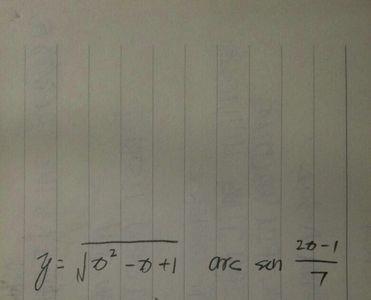 y = √(x² - x + 1) arc sen (2x - 1)/7